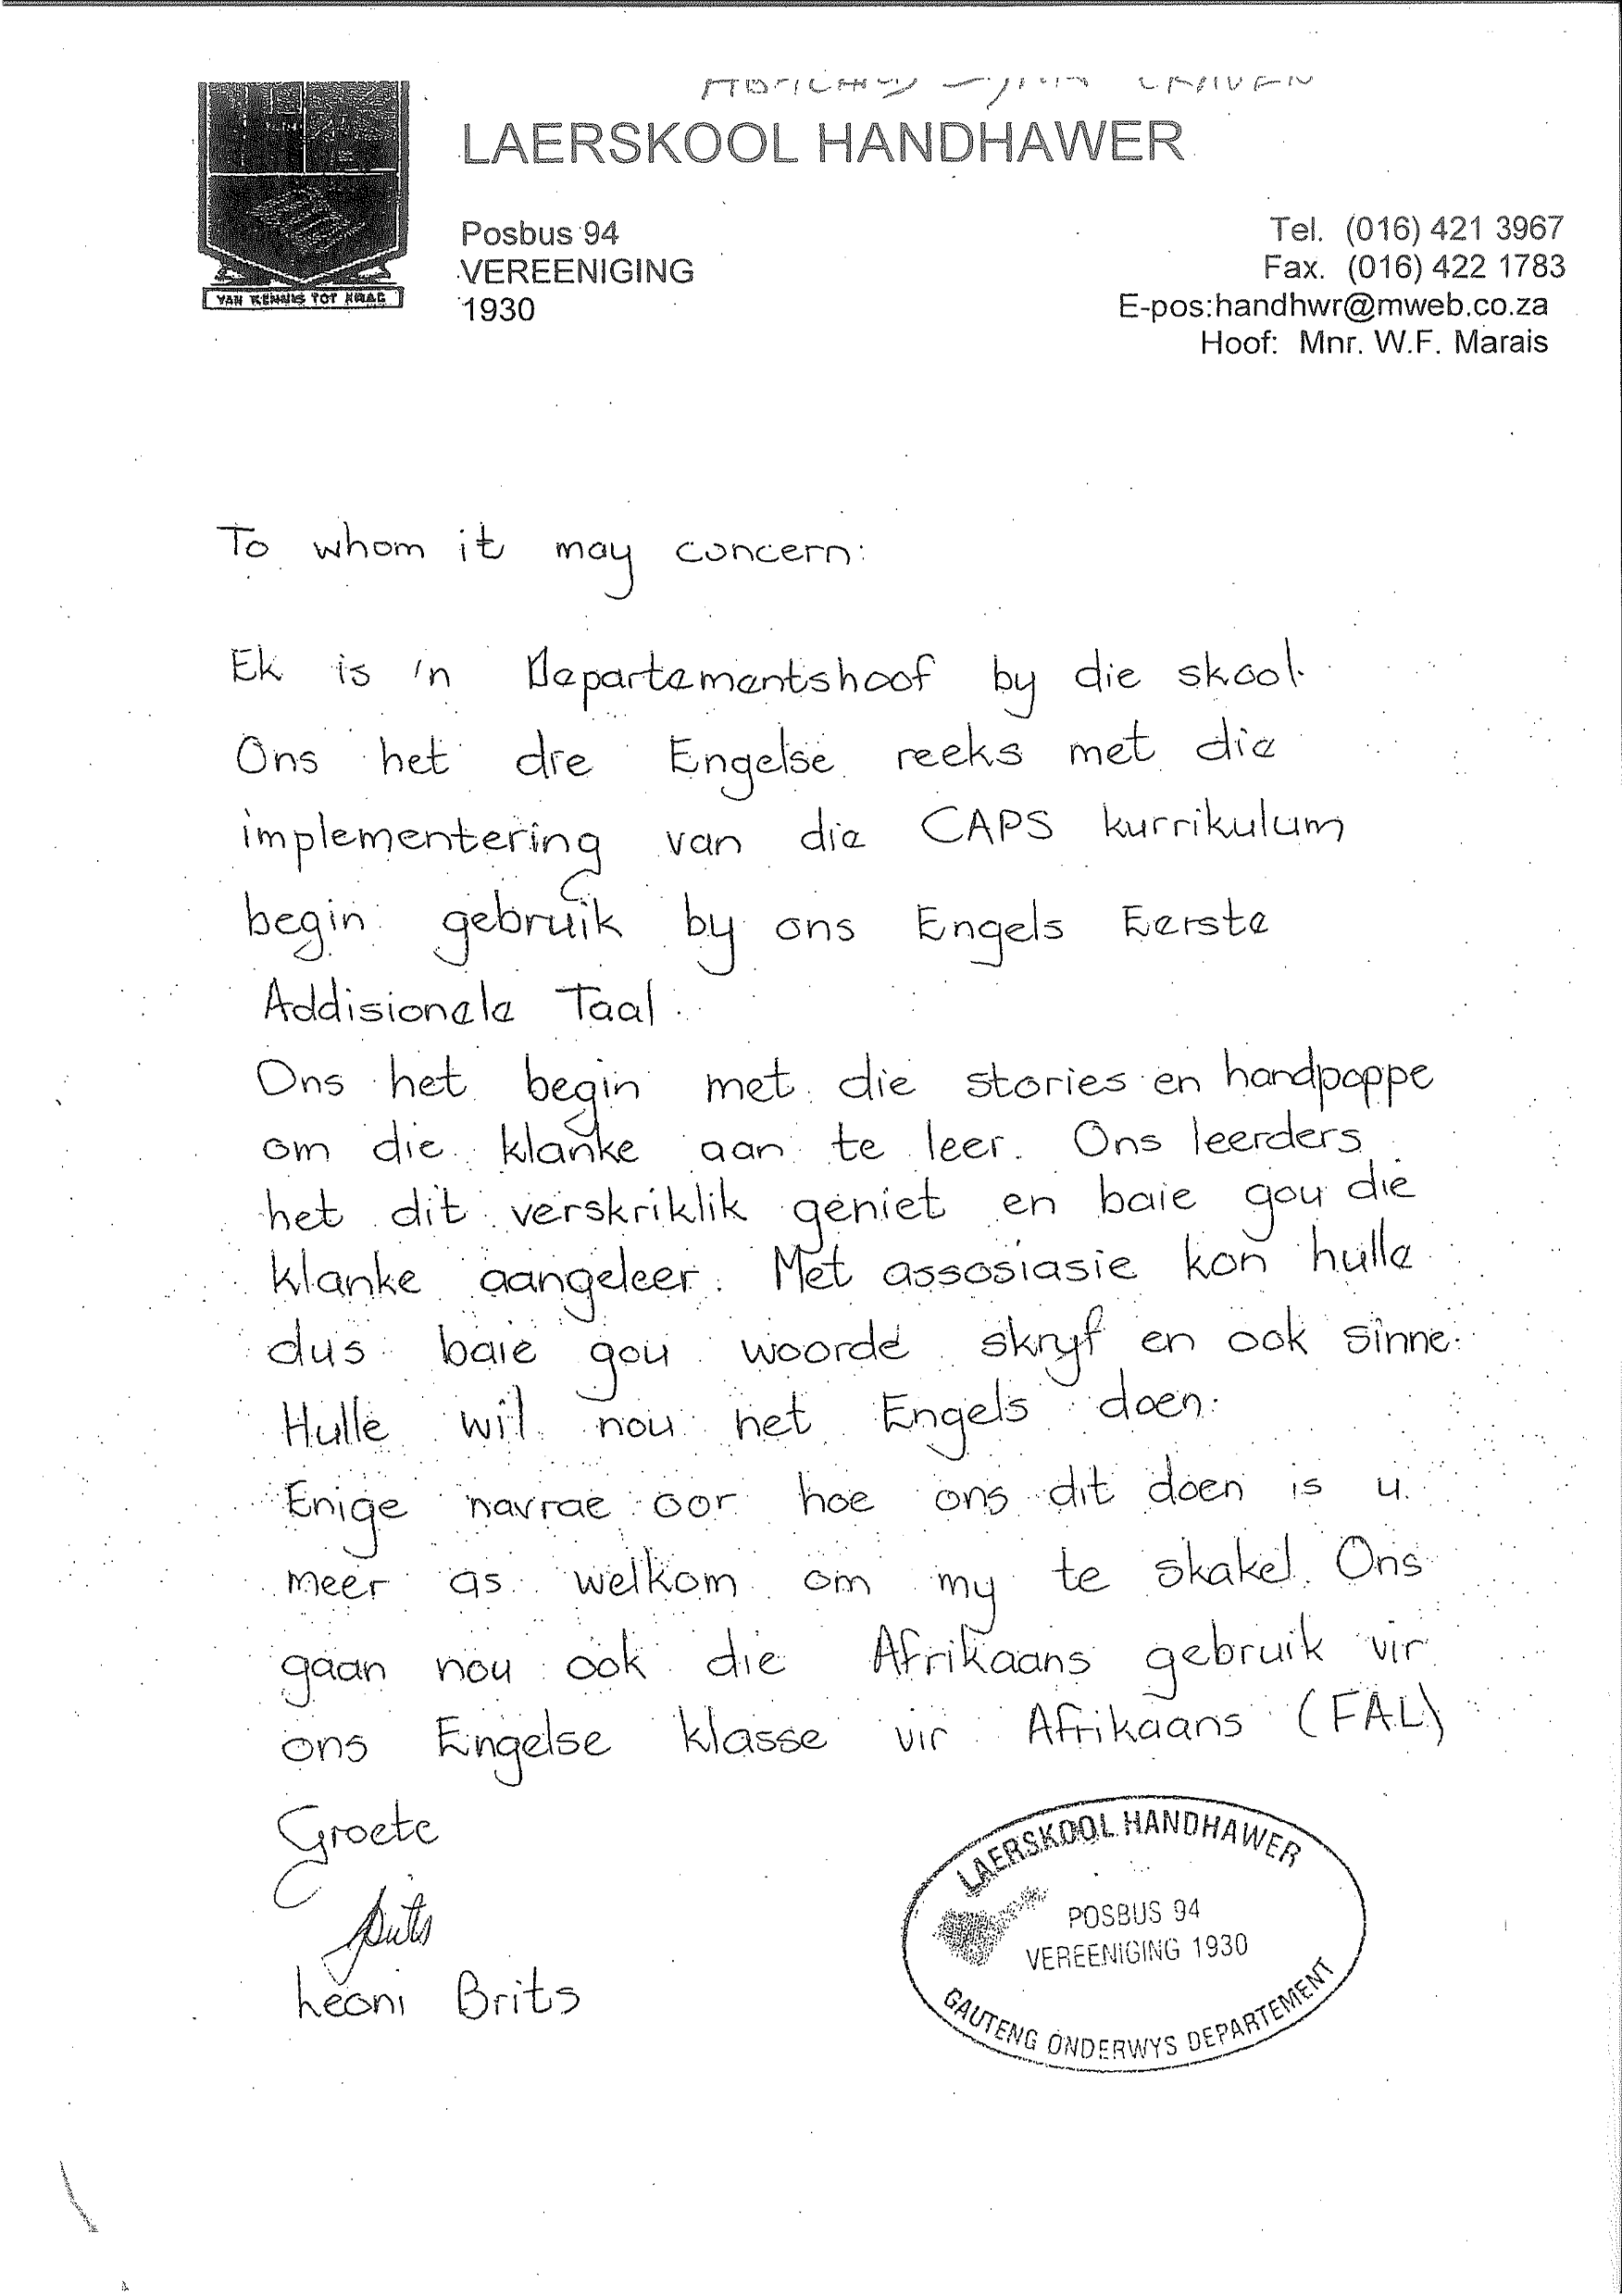 LAERSKOOL HANDHAWER
VAN KENNIS TOT KRAG
Posbus 94
VEREENIGING
1930
Tel. (016) 421 3967
Fax. (016) 422 1783
E-pos:handhwr@mweb.co.za
Hoof: Mnr. W.F. Marais
To whom it may concern:
Ek is 'n Departementshoof by die skool.
Ons het die Engelse reeks met die
implementering van die CAPS kurrikulum
begin gebruik by ons Engels Eerste
Addisionele Taal.
Ons het begin met die stories en handpoppe
om die klanke aan te leer. Ons leerders
het dit verskriklik geniet en baie gou die
klanke aangeleer. Met assosiasie kon hulle
dus baie gou woorde skryf en ook sinne.
Hulle wil nou net Engels doen.
Enige navrae oor hoe ons dit doen is u
meer as welkom om my te skakel. Ons
gaan nou ook die Afrikaans gebruik vir
ons Engelse klasse vir Afrikaans (FAL)
Groete
Leoni Brits
LAERSKOOL HANDHAWER
POSBUS 94
VEREENIGING 1930
GAUTENG ONDERWYS DEPARTEMENT